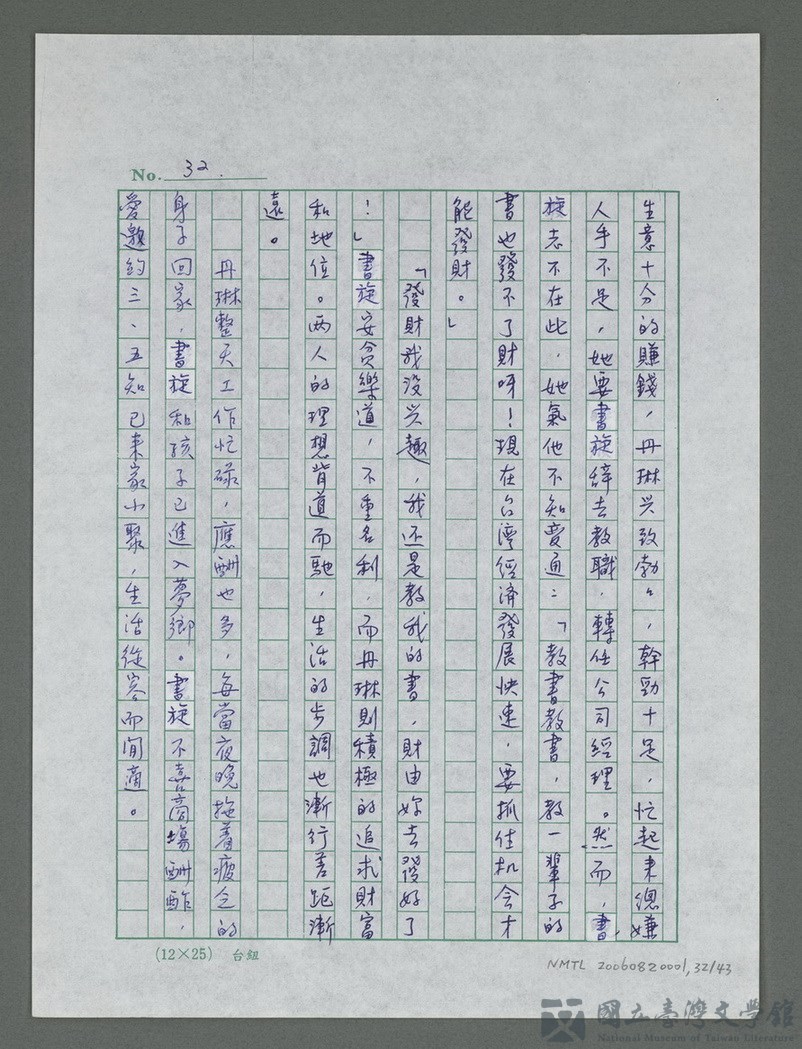 No. 32.
生意十分的賺錢，丹琳兴致勃〃，幹勁十足，忙起來總嫌
人手不足，她要書旋辞去教職，轉任公司經理。然而，書
旋志不在此，她氣他不知變通：「教書教書，教一輩子的
書也發不了財呀！現在台湾經済發展快速，要抓住机会才
能發財。」
「發財我沒兴趣，我还是教我的書，財由妳去發好了
！」書旋安貧樂道，不重名利，而丹琳則積極的追求財富
和地位。两人的理想背道而馳，生活的步調也漸行甚距漸
遠。
丹琳整天工作忙碌，應酬也多，每當夜晚拖著疲乏的
身子回家，書旋和孩子已進入夢鄉。書旋不喜商場酬酢，
愛邀約三、五知己來家小聚，生活從容而閒適。
(12×25) 台鈕
NMTL 20060820001, 32/43
國立臺灣文學館
National Museum of Taiwan Literature